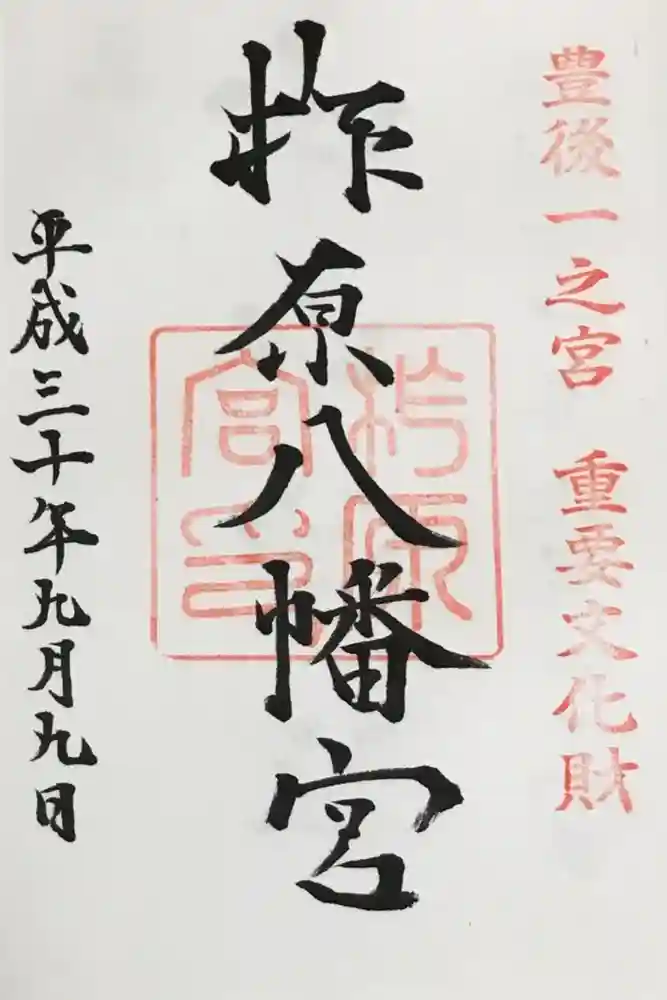 豊後一之宮　重要文化財
柞原八幡宮
柞原宮印
平成三十年九月九日